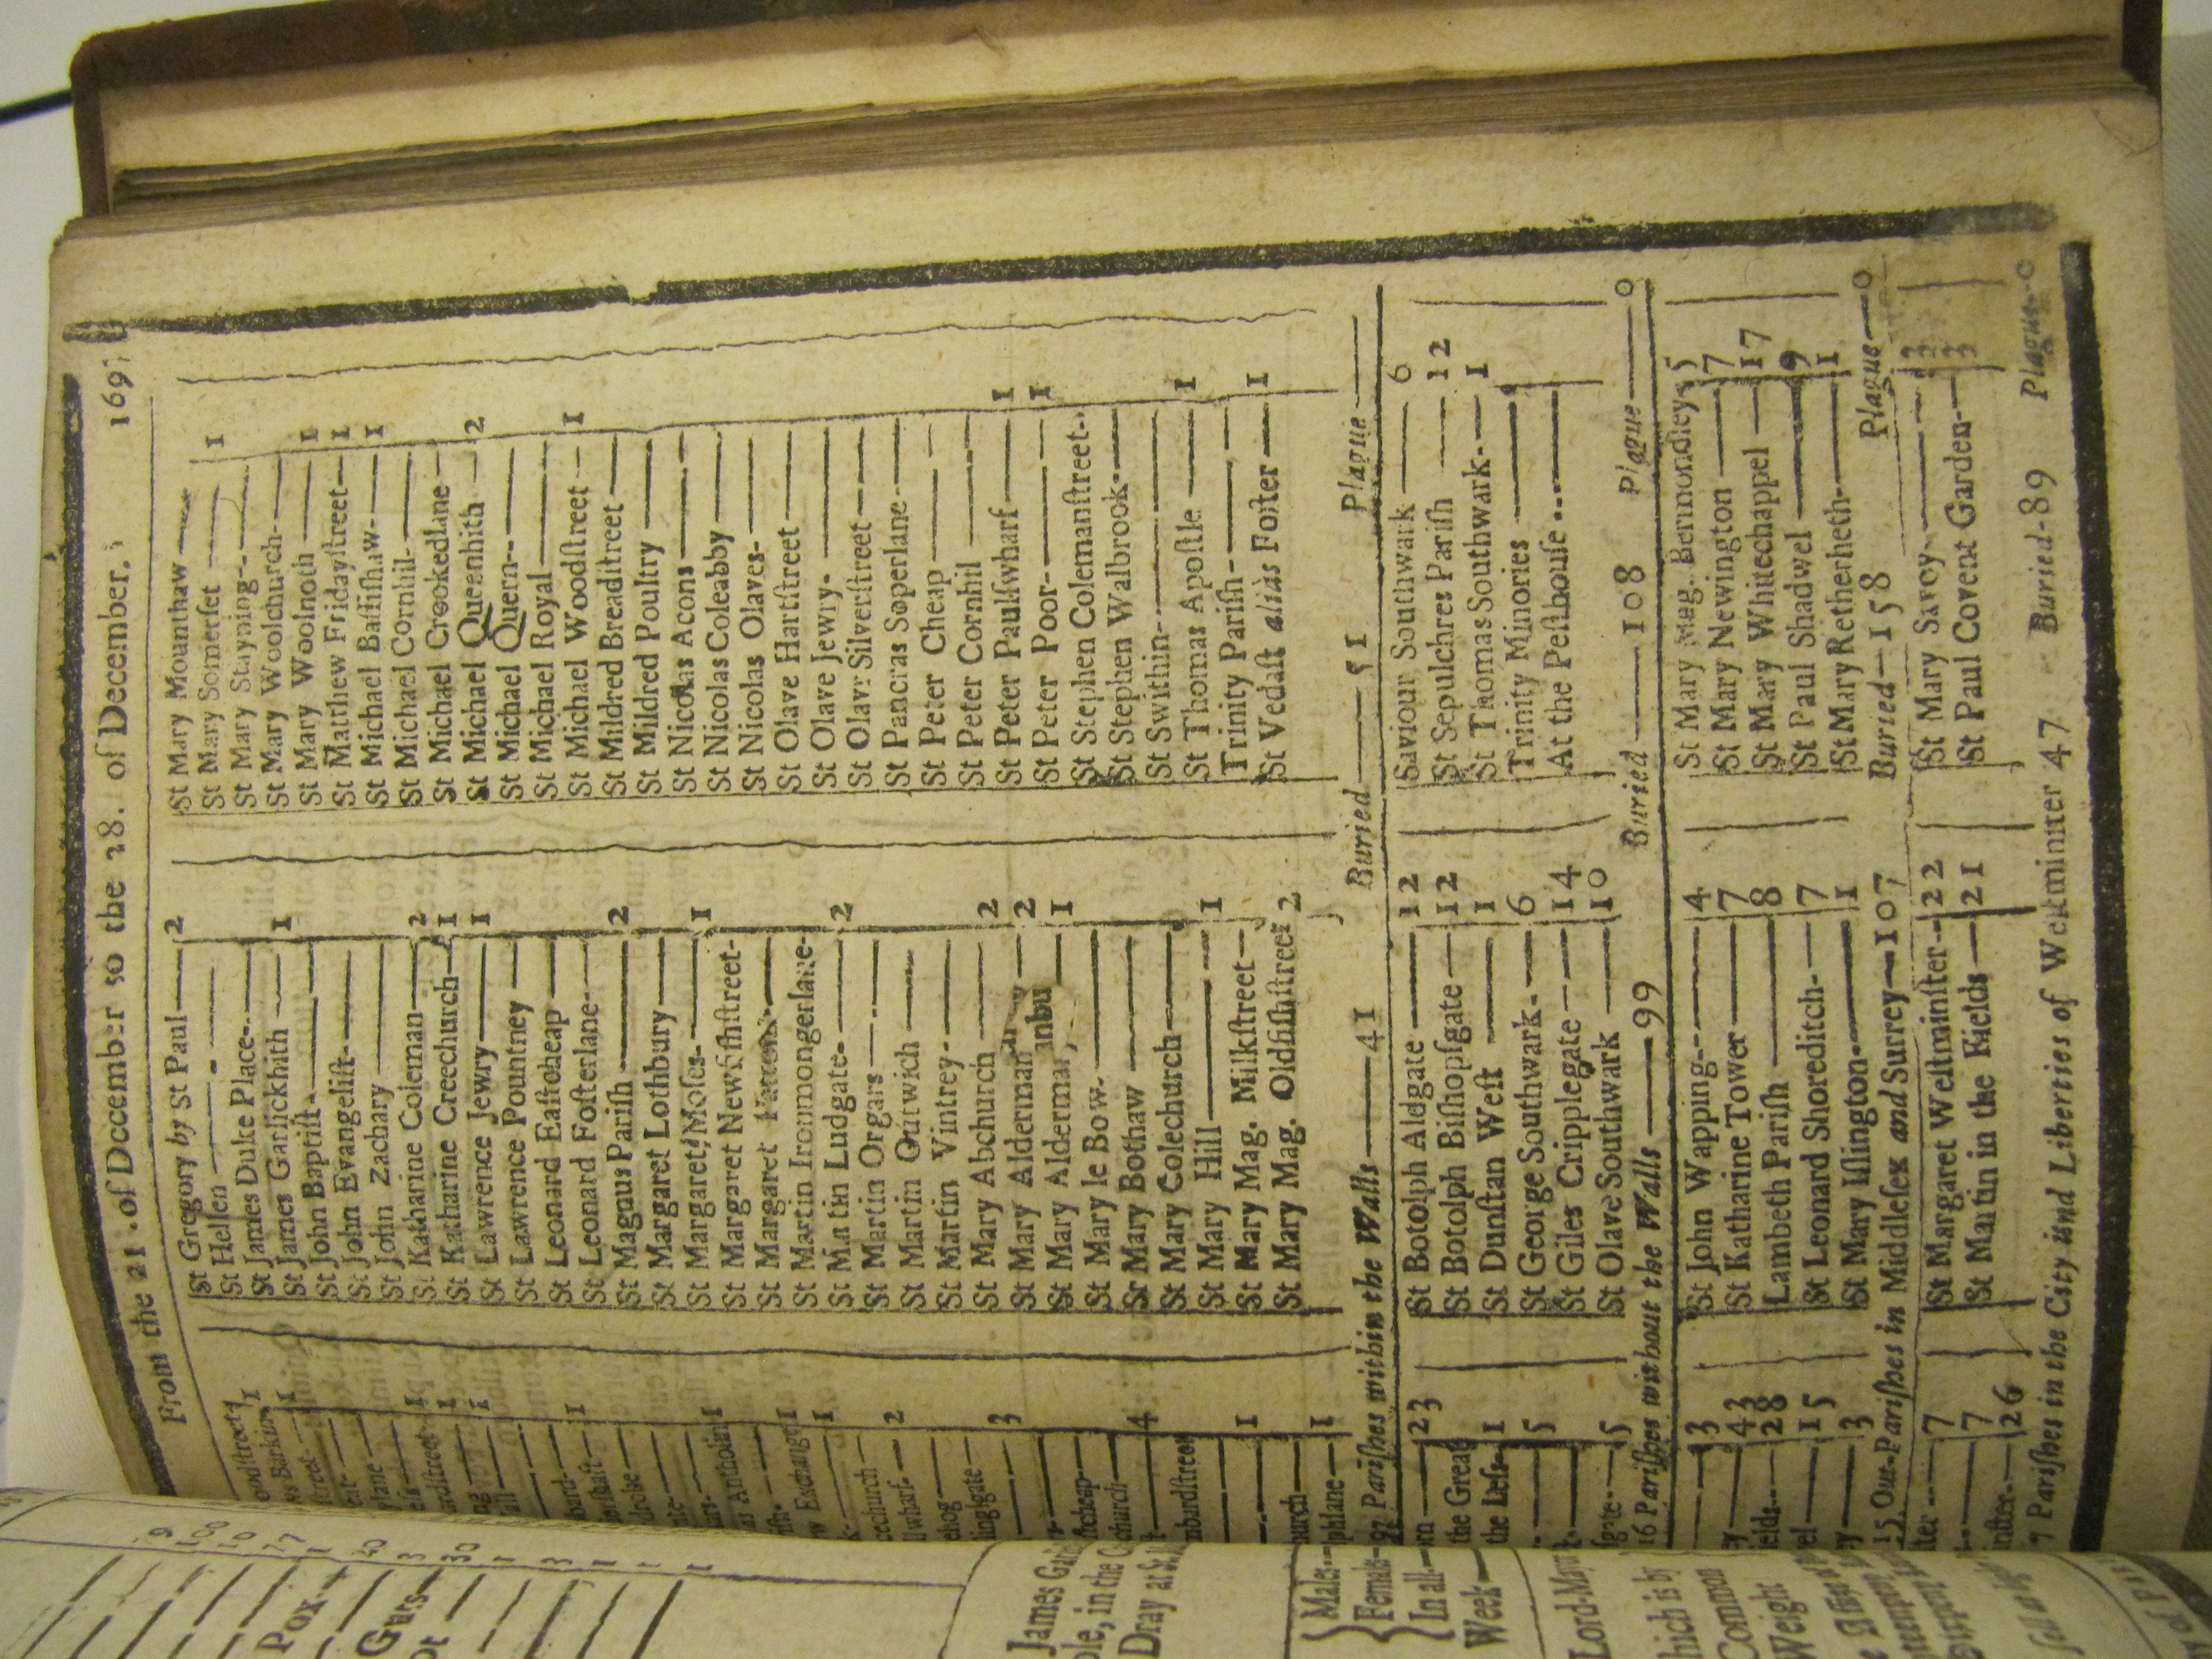 From the 21 .of December so the 28. of December. 169
oodstreet 1
ws Barkin 1
street-
lane
1
urdstreet 1
1
1
as Anthorlin 1
w Exchange 1
1
echurch
wharf- 2
ehog
lingsgate
3
stcheap
church 4
mburdstreet
1
hurch
phlane 1
St Gregory by St Paul 2
St Hellen
St James Duke Place
St James Garlickhith 1
St John Baptist
St John Evangelist
St John Zachary
St Katharine Coleman 2
St Katharine Creechurch 1
St Lawrence Jewry 1
St Lawrence Pountney
St Leonard Eastcheap
St Leonard Fosterlane
St Magnus Parish 2
St Margaret Lothbury
St Margaret Moses 1
St Margaret Newfishstreet
St Margaret
St Martin Ironmongerlane
St Martin Ludgate 2
St Martin Orgars
St Martin Outwich
St Martin Vintrey
St Mary Abchurch 2
St Mary Alderman 2
St Mary Alderman 1
St Mary le Bow
St Mary Bothaw
St Mary Colechurch
St Mary Hill 1
St Mary Mag. Milkstreet
St Mary Mag. Oldfishstreet 2
St Mary Mounthaw
St Mary Somerset 1
St Mary Stayning
St Mary Woolchurch
St Mary Woolnoth 1
St Matthew Fridaystreet 1
St Michael Bassishaw 1
St Michael Cornhil
St Michael Crookedlane
St Michael Queenhith 2
St Michael Quern
St Michael Royal
St Michael Woodstreet 1
St Mildred Breadstreet
St Mildred Poultry
St Nicolas Acons
St Nicolas Coleabby
St Nicolas Olaves
St Olave Hartstreet
St Olave Jewry
St Olave Silverstreet
St Pancras Soperlane
St Peter Cheap
St Peter Cornhil
St Peter Paulswharf 1
St Peter Poor 1
St Stephen Colemanstreet
St Stephen Walbrook
St Swithin
St Thomas Apostle 1
Trinity Parish
St Vedast aliàs Foster 1
97 Parishes within the Walls 41 Buried 51 Plague
rn 23
the Great
the Less 1
5
sgate 5
St Botolph Aldgate 12
St Botolph Bishopsgate 12
St Dunstan West 1
St George Southwark 6
St Giles Cripplegate 14
St Olave Southwark 10
Saviour Southwark 6
St Sepulchres Parish 12
St Thomas Southwark 1
Trinity Minories
At the Pesthouse
16 Parishes without the Walls 99 Buried 108 Plague 0
3
y 43
ields 28
el 15
y 3
St John Wapping 4
St Katharine Tower 7
Lambeth Parish 8
St Leonard Shoreditch 7
St Mary Islington 1
St Mary Mag. Bermondsey 5
St Mary Newington 7
St Mary Whitechappel 17
St Paul Shadwel 9
St Mary Retherheth 1
15 Out-Parishes in Middlesex and Surrey 107 Buried 158 Plague 0
ter 7
7
inster 26
St Margaret Westminster 22
St Martin in the Fields 21
St Mary Savoy 3
St Paul Covent Garden 3
7 Parishes in the City and Liberties of Westminster 47 Buried 89 Plague 0
Pox
Guts
James
ple, in the
Dray at
Males
Female
In all
Week
Lord-Mayor
hich is by
Common
Weight